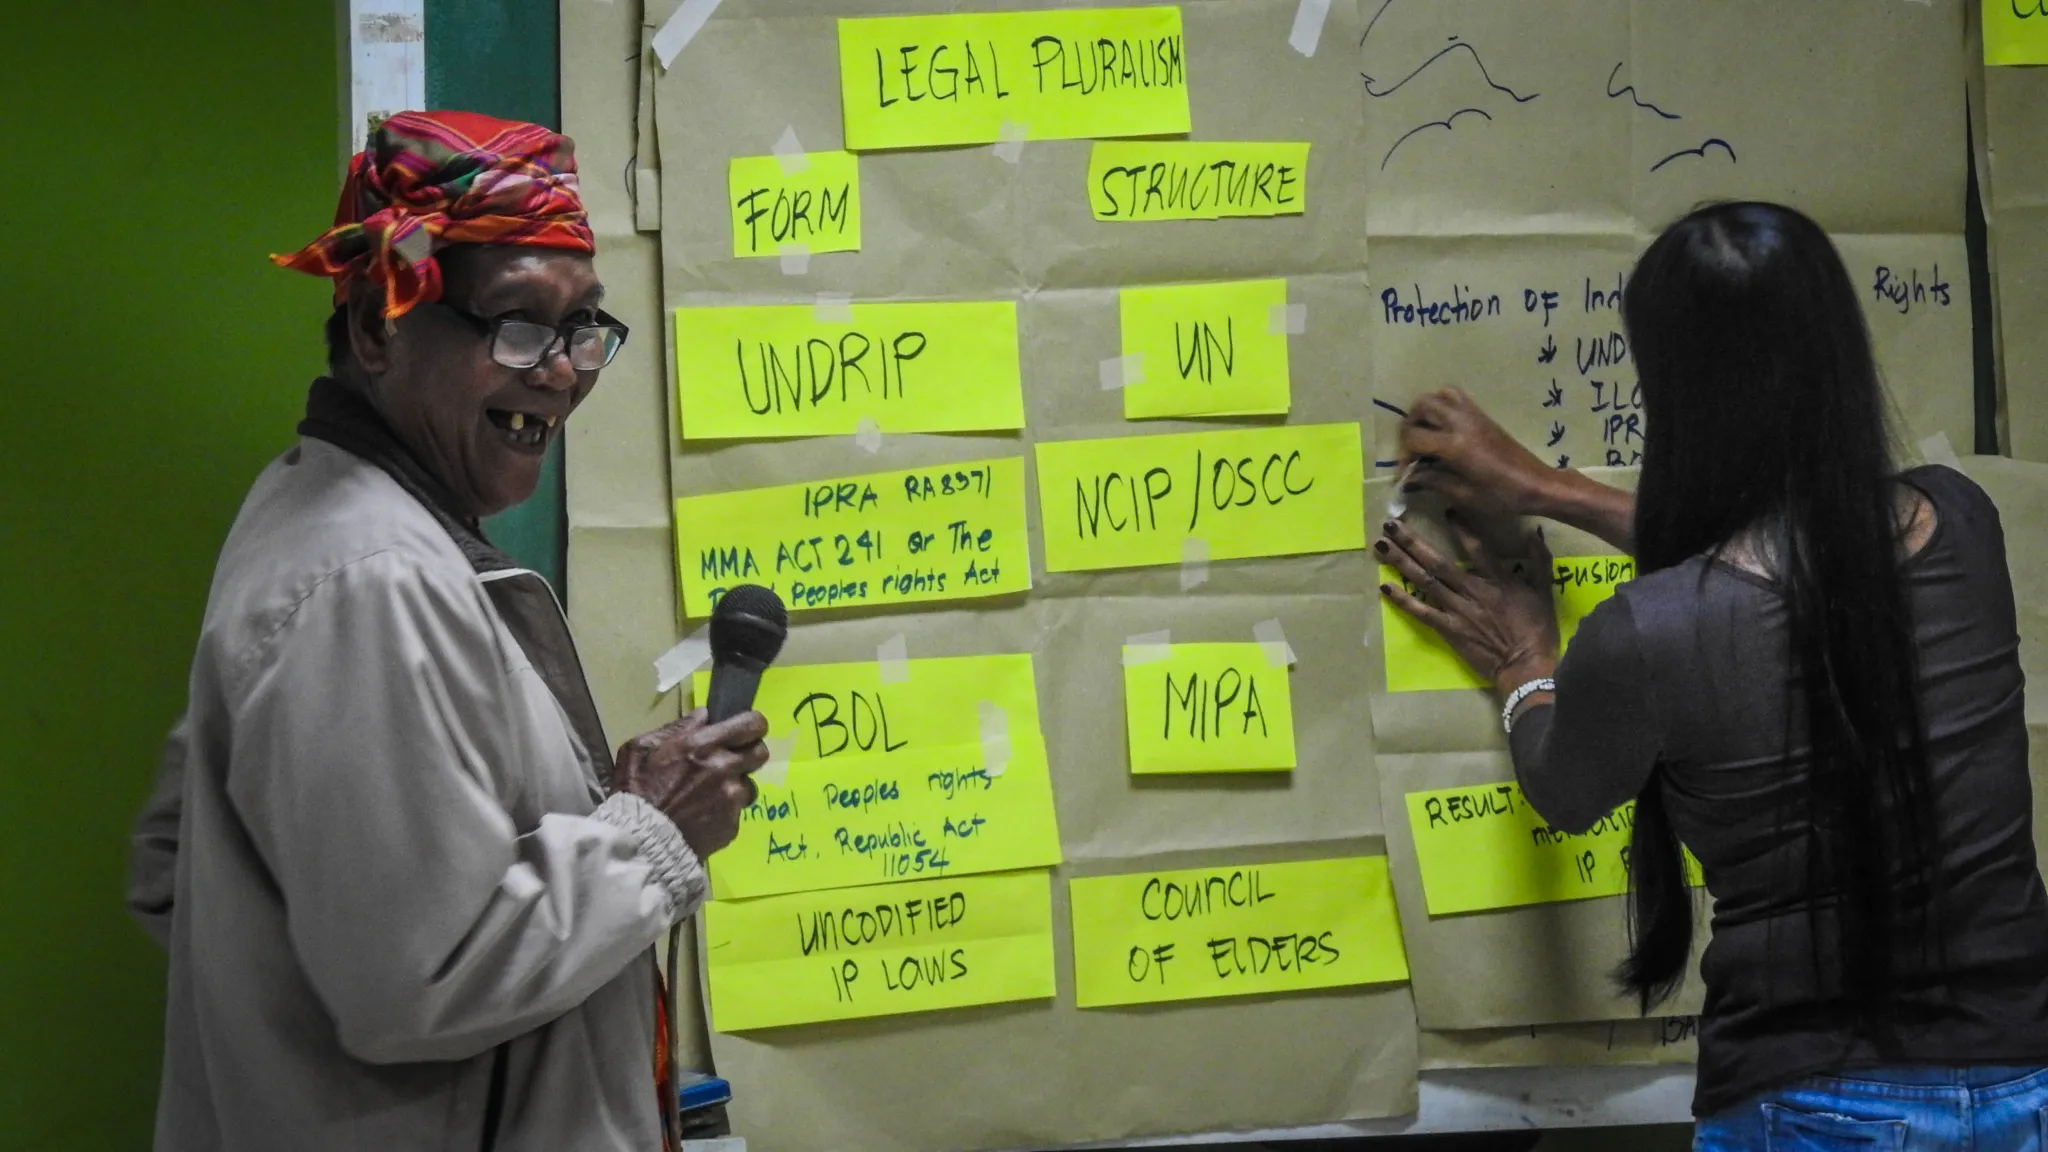 LEGAL PLURALISM
FORM
STRUCTURE
UNDRIP
UN
IPRA RA8371
MMA ACT 241 or The
Peoples rights Act
NCIP/OSCC
BOL
Peoples rights
Act. Republic Act
11054
MIPA
UNCODIFIED
IP LAWS
COUNCIL
OF ELDERS
Protection OF Rights
Fusion
RESULT:
IP